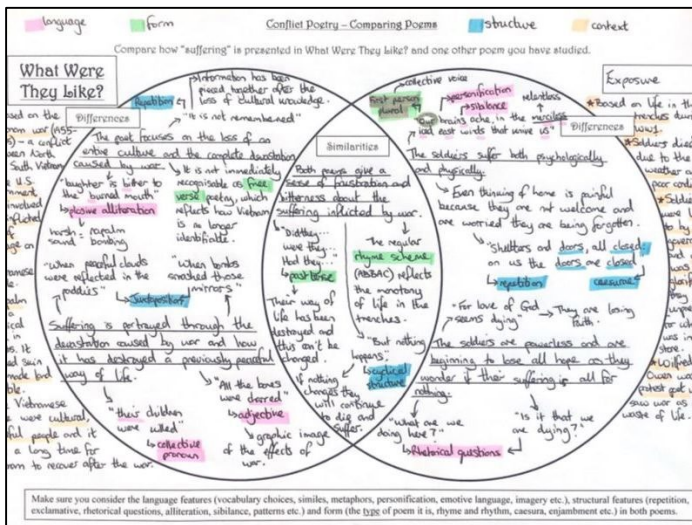 language
form
Conflict Poetry – Comparing Poems
structure
context
Compare how "suffering" is presented in What Were They Like? and one other poem you have studied.
What Were
They Like?
Differences
Repetition
Information has been
pieced together after the
loss of cultural knowledge.
"It is not remembered"
The poet focuses on the loss of an
entire culture and the complete devastation
caused by war.
"laughter is bitter to
the burned mouth"
plosive alliteration
harsh = napalm
sound bombing
It is not immediately
recognisable as free
verse poetry, which
reflects how Vietnam
is no longer
identifiable.
"When peaceful clouds
were reflected in the
paddies"
"When bombs
smashed those
mirrors"
Juxtaposition
Suffering is portrayed through the
devastation caused by war and how
it has destroyed a previously peaceful
way of life.
"their children
were killed"
collective
pronoun
"All the bones
were charred"
adjective
graphic image
of the effects of
war.
Similarities
Both poems give a
sense of frustration and
bitterness about the
suffering inflicted by war.
"Did they...
were they...
Had they...
past tense
Their way of
life has been
destroyed and
this can't be
changed.
The regular
rhyme scheme
(ABBAC) reflects
the monotony
of life in the
trenches.
"But nothing
happens"
cyclical
structure
If nothing
changes they
will continue
to die and
suffer.
Exposure
Differences
collective voice
First person
plural
personification
sibilance
relentless
"Our brains ache, in the merciless
iced east winds that knive us"
The soldiers suffer both psychologically
and physically.
Even thinking of home is painful
because they are not welcome and
are worried they are being forgotten.
"Shutters and doors, all closed:
on us the doors are closed"
repetition
caesura
"For love of God
seems dying"
They are losing
faith.
The soldiers are powerless and are
beginning to lose all hope as they
wonder if their suffering is all for
nothing.
"What are we
doing here?"
"Is it that we
are dying?"
Rhetorical questions
Based on life in the
trenches during
WW1.
Soldiers died
due to the
weather
Make sure you consider the language features (vocabulary choices, similes, metaphors, personification, emotive language, imagery etc.), structural features (repetition,
exclamative, rhetorical questions, alliteration, sibilance, patterns etc.) and form (the type of poem it is, rhyme and rhythm, caesura, enjambment etc.) in both poems.